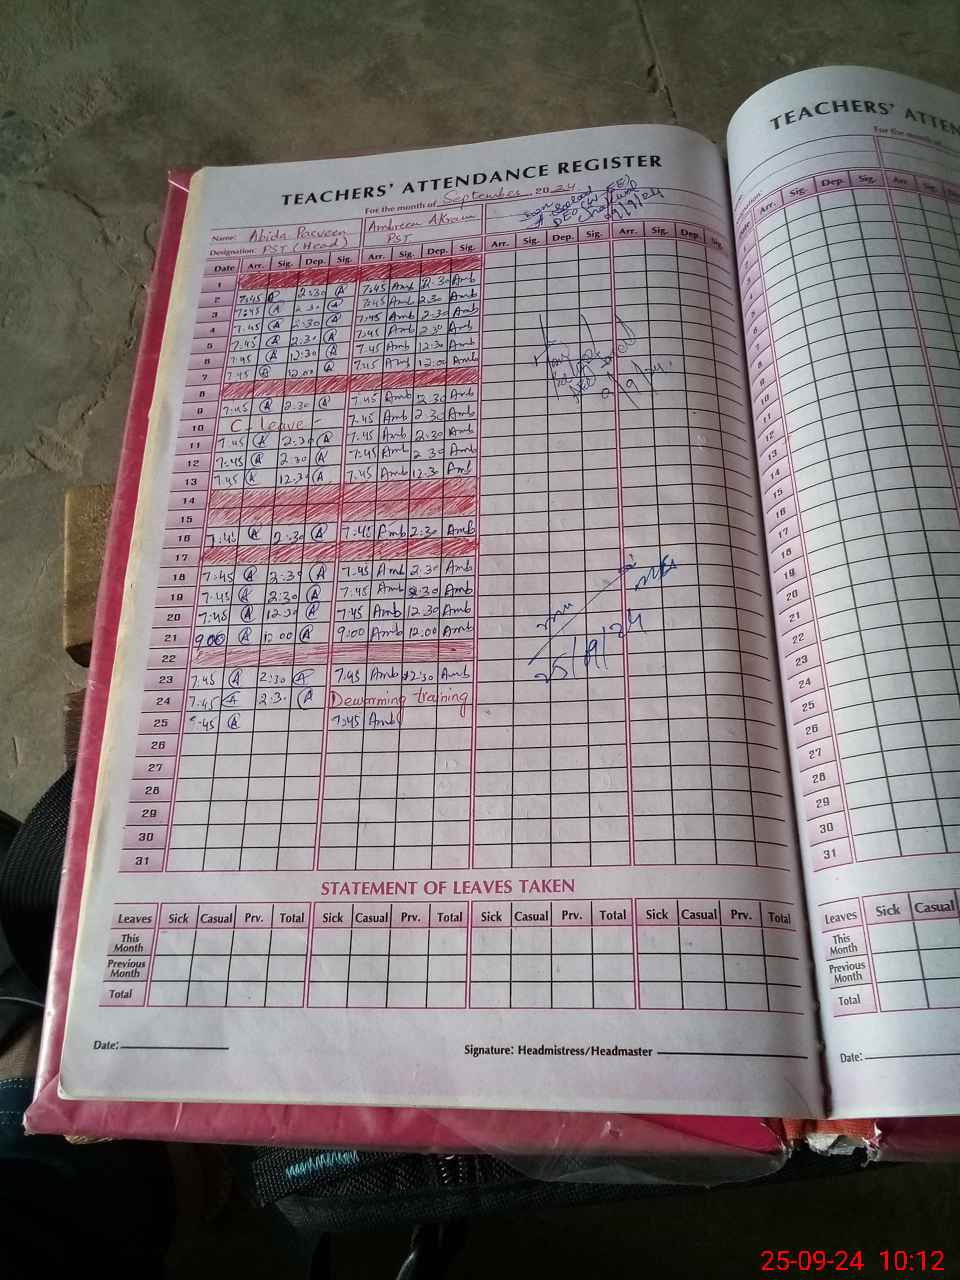 TEACHERS' ATTENDANCE REGISTER
For the month of September 2024
Name: Abida Parveen Ambreen Akram
Designation: PST (Head) PST
09/9/24
Date Arr. Sig. Dep. Sig. Arr. Sig. Dep. Sig. Arr. Sig. Dep. Sig. Arr. Sig. Dep. Sig.
1
2 7:45 A 2:30 A 7:45 Amb 2:30 Amb
3 7:45 A 2:30 A 7:45 Amb 2:30 Amb
4 7:45 A 2:30 A 7:45 Amb 2:30 Amb
5 7:45 A 2:30 A 7:45 Amb 2:30 Amb
6 7:45 A 12:30 A 7:45 Amb 12:30 Amb
7 7:45 A 12:00 A 7:45 Amb 12:00 Amb
8
9 7:45 A 2:30 A 7:45 Amb 2:30 Amb
10 C-leave - 7:45 Amb 2:30 Amb
11 7:45 A 2:30 A 7:45 Amb 2:30 Amb
12 7:45 A 2:30 A 7:45 Amb 2:30 Amb
13 7:45 A 12:30 A 7:45 Amb 12:30 Amb
14
15
16 A 2:30 A Amb 2:30 Amb
17
18 7:45 A 2:30 A 7:45 Amb 2:30 Amb
19 7:45 A 2:30 A 7:45 Amb 2:30 Amb
20 7:45 A 12:30 A 7:45 Amb 12:30 Amb
21 9:00 A 12:00 A 9:00 Amb 12:00 Amb
22
23 7:45 A 2:30 A 7:45 Amb 2:30 Amb
24 7:45 A 2:30 A Deworming training
25 7:45 A 7:45 Amb
25/9/24
26
27
28
29
30
31
STATEMENT OF LEAVES TAKEN
Leaves Sick Casual Prv. Total Sick Casual Prv. Total Sick Casual Prv. Total Sick Casual Prv. Total
This Month
Previous Month
Total
Date: Signature: Headmistress/Headmaster
TEACHERS' ATTEN
For the month of
Arr. Sig. Dep. Sig. Arr. Sig.
1
2
3
4
5
6
7
8
9
10
11
12
13
14
15
16
17
18
19
20
21
22
23
24
25
26
27
28
29
30
31
Leaves Sick Casual
This Month
Previous Month
Total
Date:
25-09-24 10:12